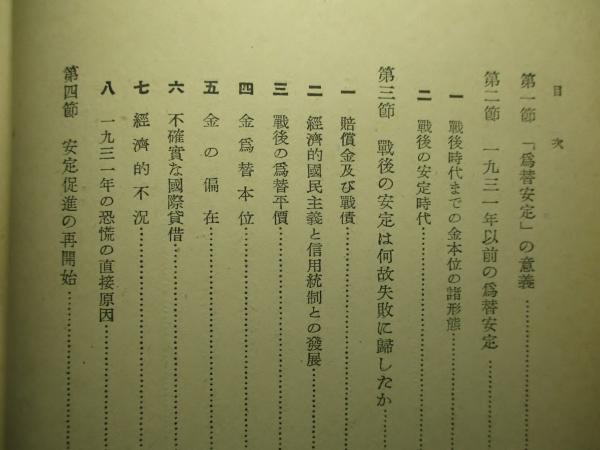 目次
第一節 「爲替安定」の意義
第二節 一九三一年以前の爲替安定
一 戰後時代までの金本位の諸形態
二 戰後の安定時代
第三節 戰後の安定は何故失敗に歸したか
一 賠償金及び戰債
二 經濟的國民主義と信用統制との發展
三 戰後の爲替平價
四 金爲替本位
五 金の偏在
六 不確實な國際貸借
七 經濟的不況
八 一九三一年の恐慌の直接原因
第四節 安定促進の再開始